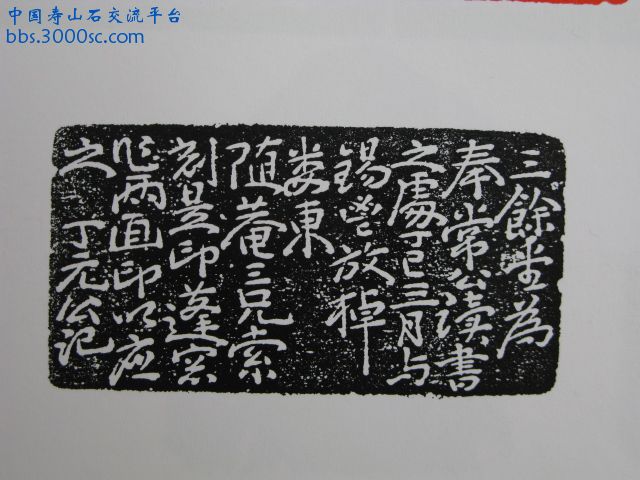 中国寿山石交流平台
bbs.3000sc.com
三餘堂為
奉常公读書
之處丁巳三月与
錫鬯放棹
娄東
随菴三兄索
刻是印蓬窓
作两面印以应
之 丁元公记